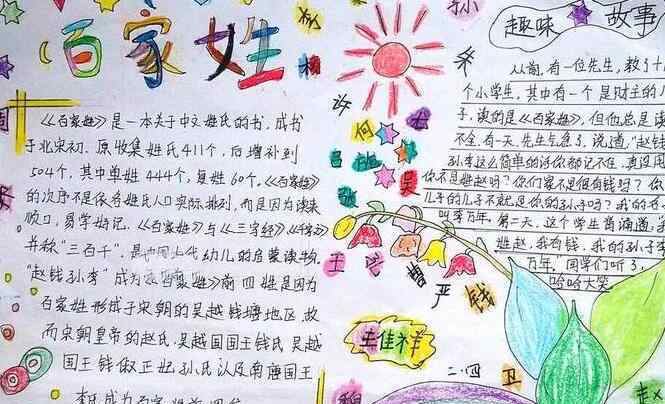 百家姓
《百家姓》是一本关于中文姓氏的书,成书
于北宋初.原收集姓氏411个,后增补到
504个,其中单姓444个,复姓60个。《百家姓》
的次序不是依各姓氏人口实际排列,而是因为读来
顺口,易学好记.《百家姓》与《三字经》《千字文》
并称"三百千",是中国古代幼儿的启蒙读物.
"赵钱孙李"成为《百家姓》前四姓是因为
百家姓形成于宋朝的吴越钱塘地区,故
而宋朝皇帝的赵氏.吴越国国王钱氏.吴越
国王钱俶正妃孙氏以及南唐国王
李氏成为百家姓前四名
周
杨
柳
孙
朱
许
何
尤
吕
张
吴
王
曹
严
钱
王佳祥
二.四
卫
魏
趣味
故事
从前,有一位先生,教了十
个小学生,其中有一个是财主的儿
子,读的是《百家姓》,但他总是读
不全.有一天,先生气急了,说道,"赵钱
孙李这么简单的诗你都记不住,真没用
你不是姓赵吗?你们家不是很有钱吗?你
儿子的儿子不就是你的孙子吗?我的
叫李万年.第二天,这个学生背诵道:我
姓赵,我有钱,我的孙子李
万年."同学们听了,
哈哈大笑